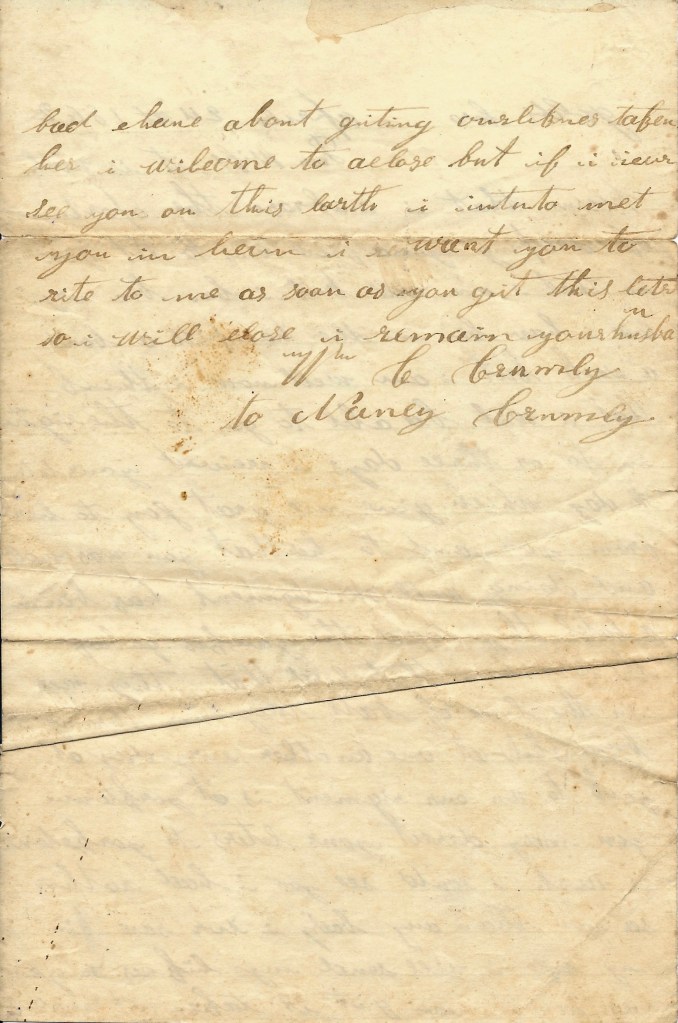 bad chanc about giting our lifves taken
her i will come to a close but if i never
see you on this earth i intn to met
you in hevn i want you to
rite to me as soon as you git this letr
so i will close i remain your husban
C Crumly
to Nancy Crumly